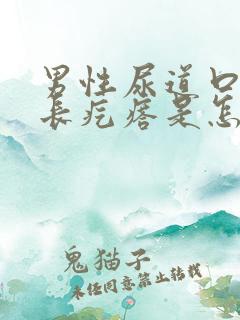 男性尿道口
长疙瘩是怎
鬼猫子
未经同意禁止转载